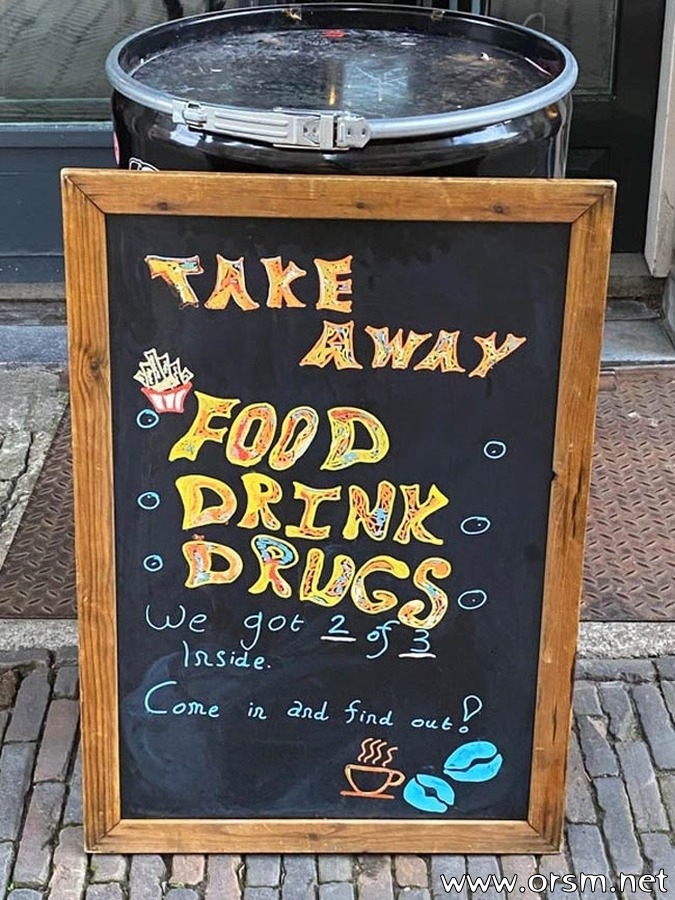 TAKE
AWAY
FOOD
DRINK
DRUGS
We got 2 of 3
Inside.
Come in and find out!
www.orsm.net